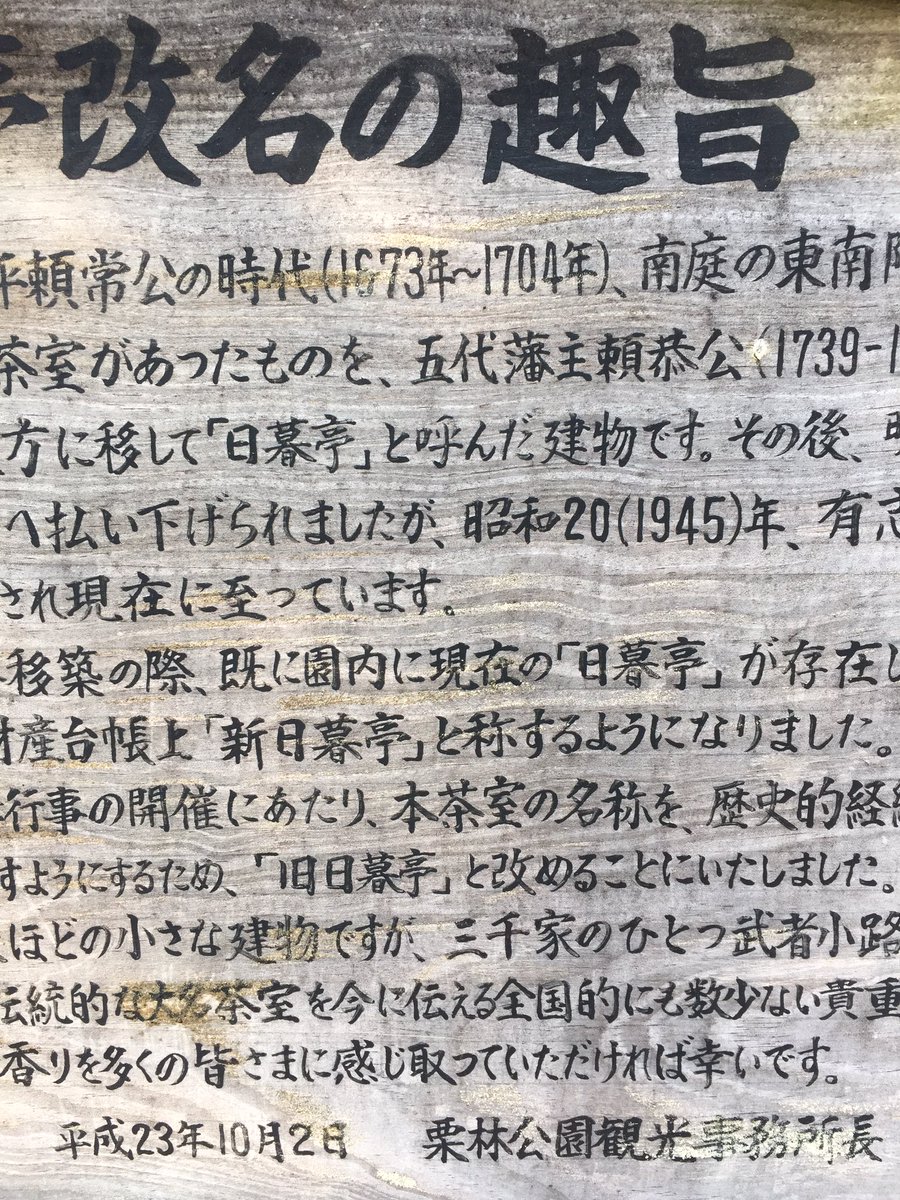 改名の趣旨
平頼常公の時代(1673年〜1704年)、南庭の東南
茶室があったものを、五代藩主頼恭公(1739-1
方に移して「日暮亭」と呼んだ建物です。その後、明
へ払い下げられましたが、昭和20(1945)年、有志
され現在に至っています。
移築の際、既に園内に現在の「日暮亭」が存在し
財産台帳上「新日暮亭」と称するようになりました。
行事の開催にあたり、本茶室の名称を、歴史的経
すようにするため、「旧日暮亭」と改めることにいたしました。
ほどの小さな建物ですが、三千家のひとつ武者小路
伝統的な大名茶室を今に伝える全国的にも数少ない貴重
香りを多くの皆さまに感じ取っていただければ幸いです。
平成23年10月2日 栗林公園観光事務所長